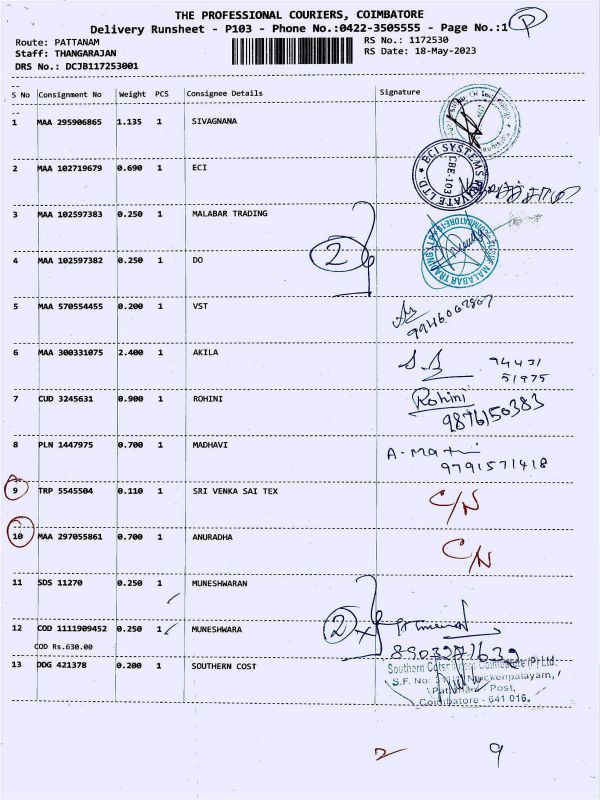 THE PROFESSIONAL COURIERS, COIMBATORE
P
Delivery Runsheet - P103 - Phone No.:0422-3505555 - Page No.:1
Route: PATTANAM
RS No.: 1172530
Staff: THANGARAJAN
RS Date: 18-May-2023
DRS No.: DCJB117253001
S No Consignment No Weight PCS Consignee Details Signature
1 MAA 295906865 1.135 1 SIVAGNANA
2 MAA 102719679 0.690 1 ECI
ECI SYSTEMS PRIVATE LTD. CBE-103
3 MAA 102597383 0.250 1 MALABAR TRADING
2
4 MAA 102597382 0.250 1 DO
5 MAA 570554455 0.200 1 VST
6 MAA 300331075 2.400 1 AKILA
94431
51975
7 CUD 3245631 0.900 1 ROHINI Rohini
9876150383
8 PLN 1447975 0.700 1 MADHAVI
9791571418
9 TRP 5545504 0.110 1 SRI VENKA SAI TEX C/N
10 MAA 297055861 0.700 1 ANURADHA C/N
11 SDS 11270 0.250 1 MUNESHWARAN
2
12 COD 1111909452 0.250 1 MUNESHWARA
COD Rs.630.00
13 DDG 421378 0.200 1 SOUTHERN COST
Southern Coimbatore (P) Ltd.
S.F. No:
Post,
Coimbatore - 641 016.
2 9